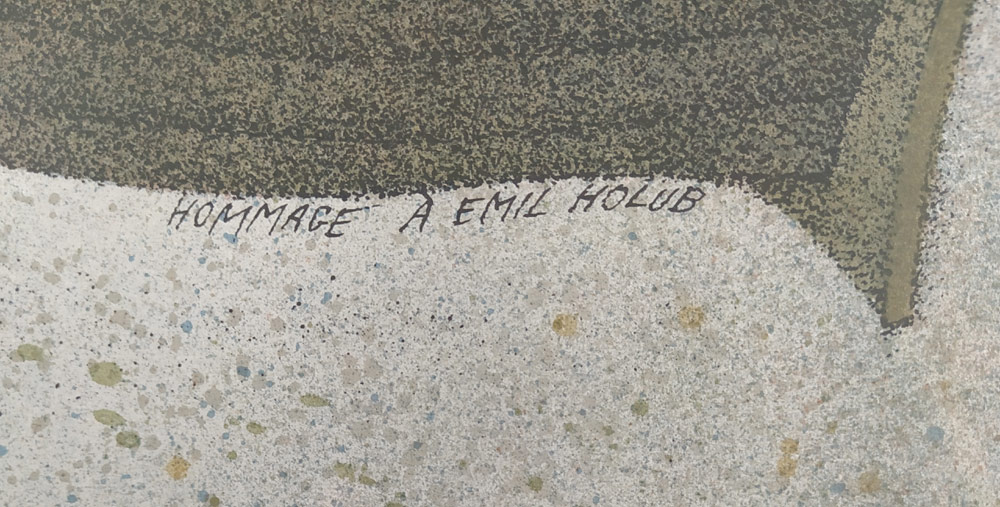 HOMMAGE À EMIL HOLUB